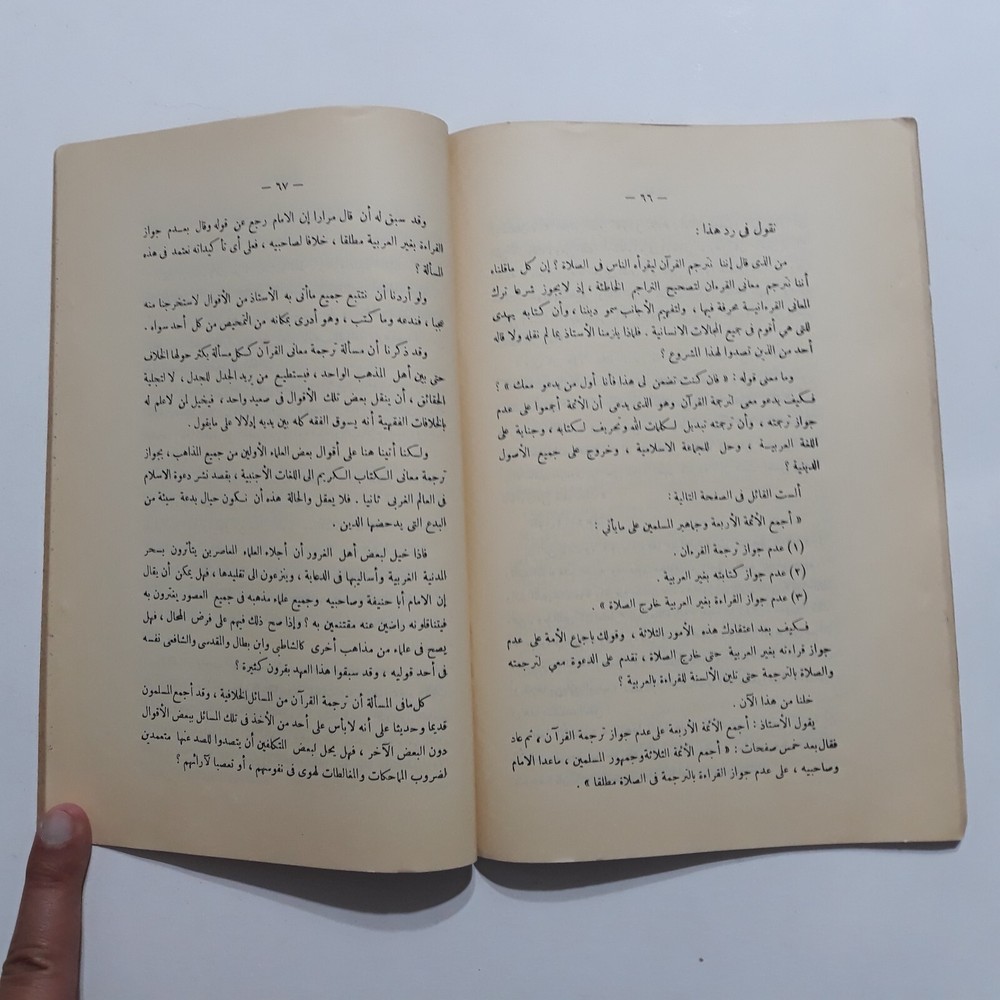 — ٦٦ —
نقول فى رد هذا :
من الذى قال إننا نترجم القرآن ليقرأه الناس فى الصلاة ؟ إن كل ماقلناه
أننا نترجم معانى القرءان لتصحيح التراجم الخاطئة ، إذ لايجوز شرعا ترك
المعانى القرءانية محرفة فيها ، ولتفهيم الأجانب سمو ديننا ، وأن كتابه يهدى
للتى هى أقوم فى جميع المجالات الانسانية . فلماذا يلزمنا الأستاذ بما لم نقله ولا قاله
أحد من الذين تصدوا لهذا المشروع ؟
وما معنى قوله : « فان كنت تضمن لى هذا فأنا أول من يدعو معك » ؟
فكيف يدعو معى لترجمة القرآن وهو الذى يدعى أن الأئمة أجمعوا على عدم
جواز ترجمته ، وأن ترجمته تبديل لكلمات الله وتحريف لكتابه ، وجناية على
اللغة العربية ، وحل للجماعة الاسلامية ، وخروج على جميع الأصول
الدينية ؟
ألست القائل فى الصفحة التالية :
« أجمع الأئمة الأربعة وجماهير المسلمين على مايأتي :
(١) عدم جواز ترجمة القرءان .
(٢) عدم جواز كتابته بغير العربية .
(٣) عدم جواز القراءة بغير العربية خارج الصلاة » .
فكيف بعد اعتقادك هذه الأمور الثلاثة ، وقولك باجماع الأمة على عدم
جواز قراءته بغير العربية حتى خارج الصلاة ، تقدم على الدعوة معي لترجمته
والصلاة بالترجمة حتى تلين الألسنة للقراءة بالعربية ؟
خلنا من هذا الآن .
يقول الأستاذ : أجمع الأئمة الأربعة على عدم جواز ترجمة القرآن ، ثم عاد
فقال بعد خمس صفحات : « أجمع الأئمة الثلاثة وجمهور المسلمين ، ماعدا الامام
وصاحبيه ، على عدم جواز القراءة بالترجمة فى الصلاة مطلقا » .
— ٦٧ —
وقد سبق له أن قال مرارا إن الامام رجع عن قوله وقال بعدم جواز
القراءة بغير العربية مطلقا ، خلافا لصاحبيه ، فعلى أى تأكيداته نعتمد فى هذه
المسألة ؟
ولو أردنا أن نتتبع جميع ماأتى به الأستاذ من الأقوال لاستخرجنا منه
عجبا ، فندعه وما كتب ، وهو أدرى بمكانه من التمحيص من كل أحد سواه .
وقد ذكرنا أن مسألة ترجمة معانى القرآن ككل مسألة يكثر حولها الخلاف
حتى بين أهل المذهب الواحد ، فيستطيع من يريد الجدل للجدل ، لا لتجلية
الحقائق ، أن ينقل بعض تلك الأقوال فى صعيد واحد ، فيخيل لمن لاعلم له
بالخلافات الفقهية أنه يسوق الفقه كله بين يديه إدلالا على مايقول .
ولكنا أتينا هنا على أقوال بعض العلماء الأولين من جميع المذاهب ، بجواز
ترجمة معانى الكتاب الكريم الى اللغات الأجنبية ، بقصد نشر دعوة الاسلام
فى العالم الغربى ثانيا . فلا يعقل والحالة هذه أن نكون حيال بدعة سيئة من
البدع التى يدحضها الدين .
فاذا خيل لبعض أهل الغرور أن أجلاء العلماء المعاصرين يتأثرون بسحر
المدنية الغربية وأساليبها فى الدعاية ، وينزعون الى تقليدها ، فهل يمكن أن يقال
إن الامام أبا حنيفة وصاحبيه وجميع علماء مذهبه فى جميع العصور يغترون به
فيتناقلونه راضين عنه مقتنعين به ؟ وإذا صح ذلك فيهم على فرض المحال ، فهل
يصح فى علماء من مذاهب أخرى كالشاطبى وابن بطال والمقدسى والشافعى نفسه
فى أحد قوليه ، وقد سبقوا هذا العهد بقرون كثيرة ؟
كل مافى المسألة أن ترجمة القرآن من المسائل الخلافية ، وقد أجمع المسلمون
قديما وحديثا على أنه لابأس على أحد من الأخذ فى تلك المسائل ببعض الأقوال
دون البعض الآخر ، فهل يحل لبعض المتكلفين أن يتصدوا للصد عنها متعمدين
لضروب المماحكات والمغالطات لهوى فى نفوسهم ، أو تعصبا لآرائهم ؟